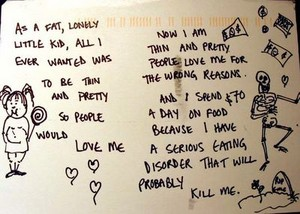 AS A FAT, LONELY
LITTLE KID, ALL I
EVER WANTED WAS
TO BE THIN
AND PRETTY
SO PEOPLE
WOULD
LOVE ME
NOW I AM
THIN AND PRETTY
PEOPLE LOVE ME FOR
THE WRONG REASONS.
AND I SPEND $70
A DAY ON FOOD
BECAUSE I HAVE
A SERIOUS EATING
DISORDER THAT WILL
PROBABLY
KILL ME.